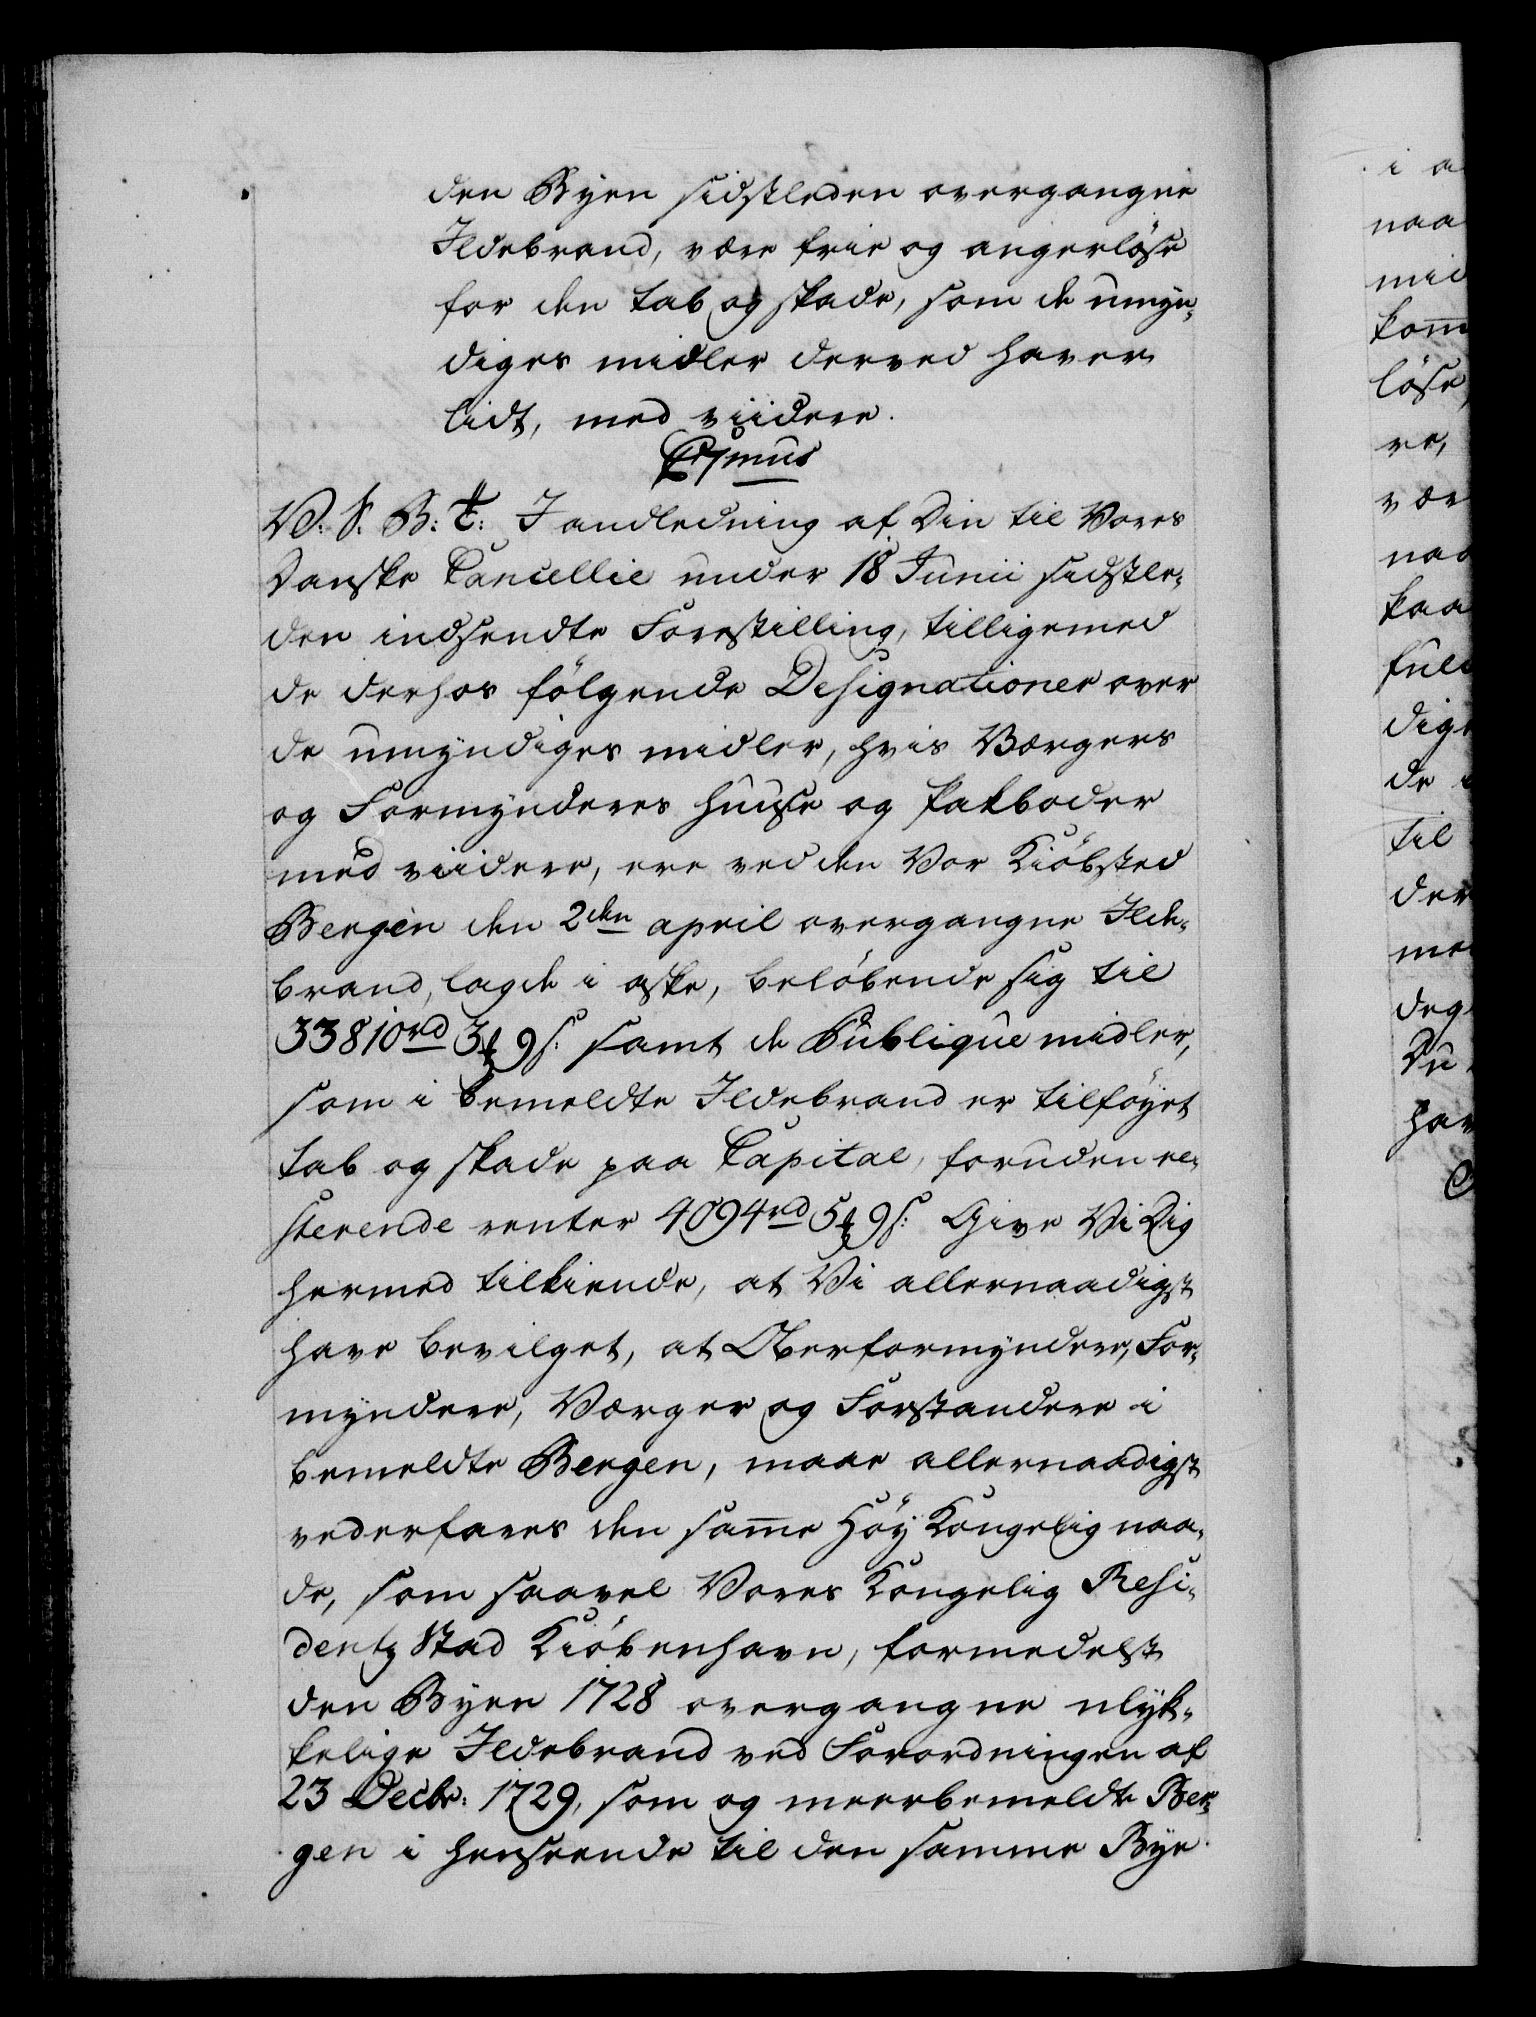 den Byen sidstleden overgangne
Ildebrand, være frie og angerløse
for den tab og skade, som de umyn-
diges midler derved haver
lidt, med viidere.
V. S. B: t: I andledning af Din til Vores
Danske Cancellie under 18 Junii sidstle-
den indsendte Forestilling, tilligemed
de derhos følgende Designationer over
de umyndiges midler, hvis Værgers
og Formynderes huuse og Pakboder
med viidere, ere ved den Vor Kiøbsted
Bergen den 2den april overgangne Ilde-
brand, lagde i aske, beløbende sig til
33810rd 3 ꝸ 9 s: samt de Publique midler,
som i bemeldte Ildebrand er tilføyet
tab og skade paa Capital, foruden re-
sterende renter 4094rd 5 ꝸ 9 s: Give Vi Dig
hermed tilkiende, at Vi allernaadigst
have bevilget, at Oberformyndere, For-
myndere, Værger og Forstandere i
bemeldte Bergen, maae allernaadigst
vederfares den samme Høy Kongelig naa-
de, som saavel Vores Kongelig Resi-
dentz Stad Kiøbenhavn, formedelst
den Byen 1728 overgangne ulyk-
kelige Ildebrand ved Forordningen af
23 Decbr: 1729, som og meerbemeldte Ber-
gen i henseende til den samme Bye
i a
naa
mid
kom
løse,
re,
vær
naa
kaa
fuld
dige
de
til
der
me
deg
Du
hav